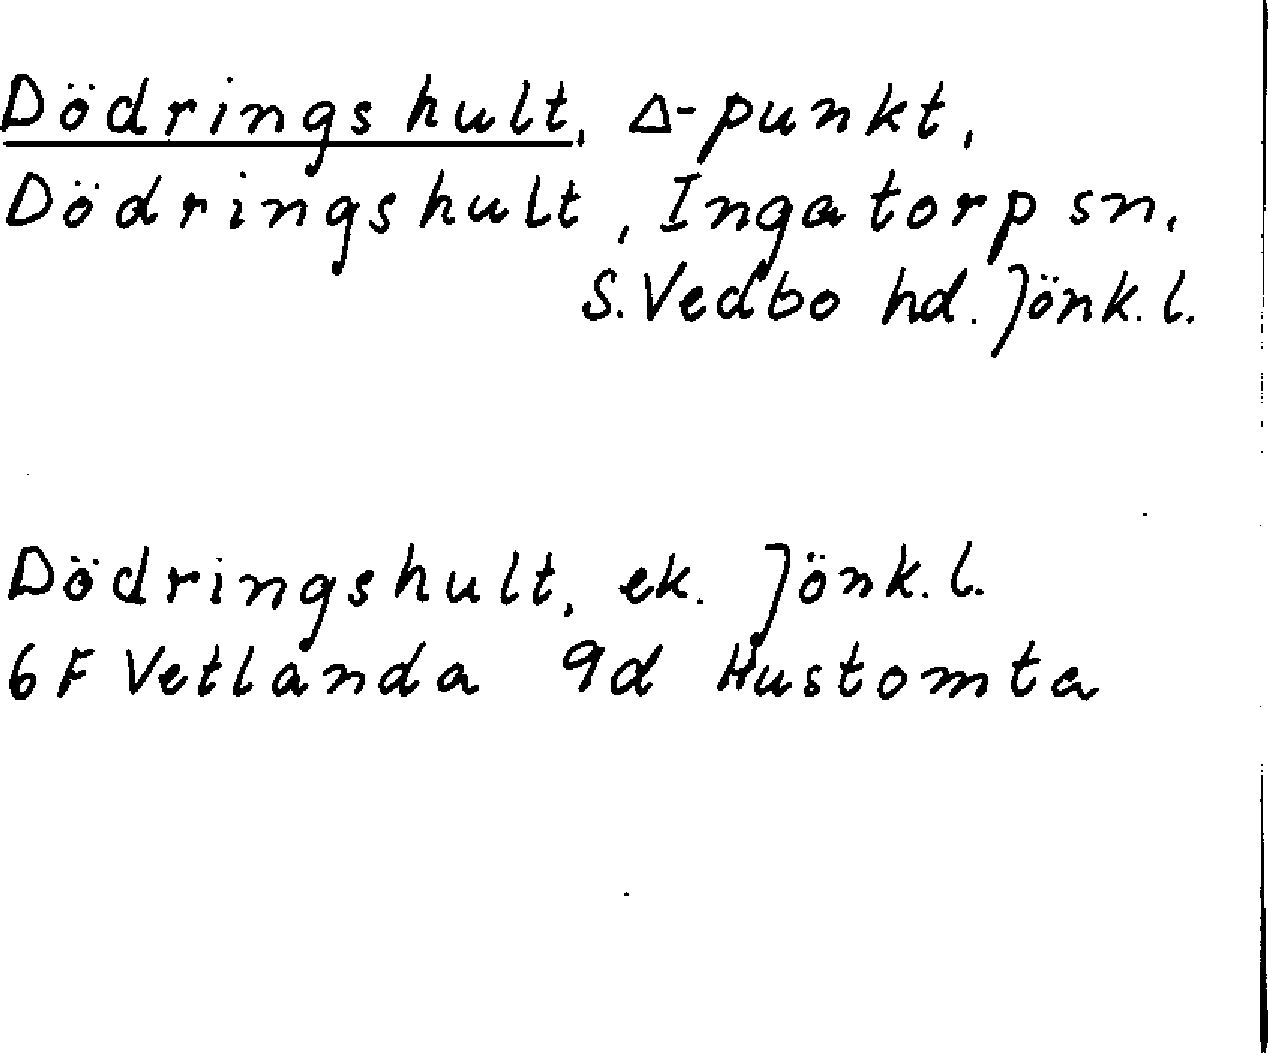 Dödringshult, Δ-punkt,
Dödringshult, Ingatorp sn,
S. Vedbo hd. Jönk. l.
Dödringshult, ek. Jönk. l.
6F Vetlanda 9d Hustomta